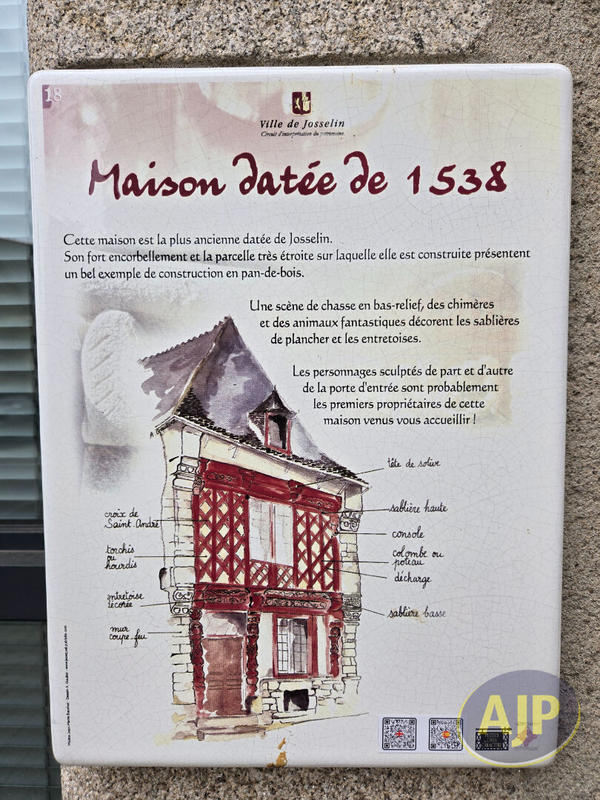 18
Ville de Josselin
Circuit d'interprétation du patrimoine
Maison datée de 1538
Cette maison est la plus ancienne datée de Josselin.
Son fort encorbellement et la parcelle très étroite sur laquelle elle est construite présentent
un bel exemple de construction en pan-de-bois.
Une scène de chasse en bas-relief, des chimères
et des animaux fantastiques décorent les sablières
de plancher et les entretoises.
Les personnages sculptés de part et d'autre
de la porte d'entrée sont probablement
les premiers propriétaires de cette
maison venus vous accueillir !
tête de solive
croix de
Saint-André
sablière haute
console
torchis
ou
hourdis
colombe ou
poteau
décharge
entretoise
décorée
sablière basse
mur
coupe feu
AJP